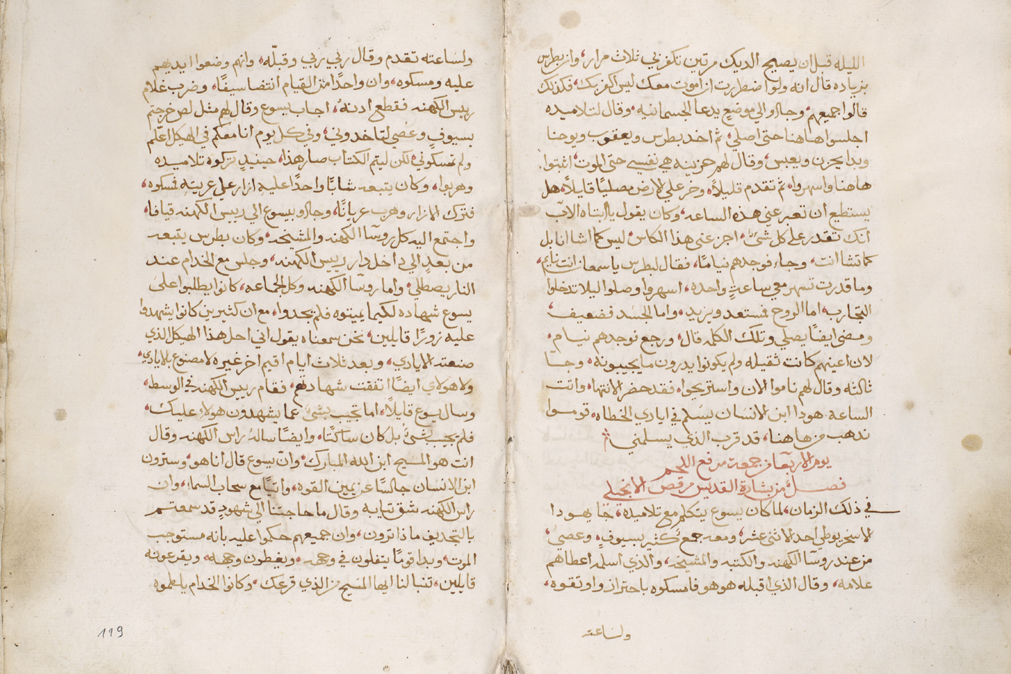 الليله قبل ان يصيح الديك مرتين تكفر بي ثلاث مرار، واز بطرس
بزياده قال انه ولو اضطررت از اموت معك ليس اكفر بك، فكذلك
قالوا جميعهم، وجاء والى موضع يدعا الجسمانيه، وقال لتلاميذه
اجلسوا هاهنا حتى اصلي، ثم اخد بطرس ويعقوب ويوحنا
وبدا يحزن ويعبس، وقال لهم حزينه هي نفسي حتى الموت، اثبتوا
هاهنا واسهروا، ثم تقدم قليلاً، وخر على الارض مصلياً قايلاً، هل
يستطيع ان تعبر عني هذه الساعه، وكان يقول يا ابتاه الاب
انك تقدر على كل شي، اجز عني هذا الكاس، ليس كما اشا انا بل
كما تشا انت، وجاء فوجدهم نياماً، فقال لبطرس يا سمعان انت نايم،
وما قدرت تسهر معي ساعةٍ واحده، اسهروا وصلوا ليلا تدخلوا
التجارب، اما الروح فمستعد ويريد، واما الجسد فضعيف،
ومضى ايضاً يصلي وتلك الكلمه قال، ورجع فوجدهم نيام،
لان اعينهم كانت ثقيله ولم يكونوا يدرون ما يجيبونه، وجا
ثالثه وقال لهم ناموا الان واستريحوا، فقد حضر الانتها، واتت
الساعه هودا ابن الانسان يسلم في ايادي الخطاه، قوموا
ندهب من هاهنا، قد قرب الذي يسلمني
يوم الاربعا من جمعة مرفع اللحم
فصل من بشارة القديس مرقص الانجيلي
في ذلك الزمان، لما كان يسوع يتكلم مع تلاميذه، جا يهودا
الاسخريوطي احد الاثني عشر، ومعه جمع كثير بسيوفٍ وعصي،
من عند روسا الكهنه والكتبه والمشيخه، والذي اسلمه اعطاهم
علامه، وقال الذي اقبله هو هو فامسكوه باحتراز واوثقوه،
ولساعته
ولساعته تقدم وقال ربي ربي وقبله، وانهم وضعوا ايديهم
عليه ومسكوه، وان واحداً من القيام انتضا سيفاً، وضرب غلام
رييس الكهنه فقطع ادنه، اجاب يسوع وقال لهم مثل لص خرجتم
بسيوف وعصي لتاخدوني، وفي كل يوم انا معكم في الهيكل اعلم
ولم تمسكوني، لكن ليتم الكتاب صار هذا، حينيدٍ تركوه تلاميذه
وهربوا، وكان يتبعه شاباً واحداً عليه ازار على عريته فمسكوه،
فترك الازار وهرب عرياناً، وجاو بيسوع الى رييس الكهنه قيافا،
واجتمع اليه كل روسا الكهنه والمشيخه، وكان بطرس يتبعه
من بعدٍ الى داخل دار رييس الكهنه، وجلس مع الخدام عند
النار يصطلي، واما روسا الكهنه وكل الجماعه، كانوا يطلبوا على
يسوع شهاده لكيما يميتوه فلم يجدوا، مع ان كثيرين كانوا يشهدوا
عليه زوراً قايلين، نحن سمعناه يقول اني احل هذا الهيكل الذي
صنعته الايادي، وبعد ثلاث ايام اقيم اخر غيره لا مصنوع بالايادي،
ولا هولاي ايضاً اتفقت شهادتهم، فقام رييس الكهنه في الوسط،
وسال يسوع قايلاً، اما تجيب بشي، عما يشهدون هولاء عليك،
فلم يجب بشي، بل كان ساكتاً، وايضاً ساله راس الكهنه وقال
انت هو المسيح ابن الله المبارك، وان يسوع قال انا هو، وسترون
ابن الانسان جالساً عن يمين القوه، واتياً مع سحاب السماء، وان
راس الكهنه شق ثيابه وقال ما حاجتنا الى شهودٍ قد سمعتم
بالتجديف ماذا ترون، وان جميعهم حكموا عليه بانه مستوجب
الموت، وبدا قوماً يتفلون في وجهه، ويغطون وجهه، ويقرعونه
قايلين، تنبا لنا ايها المسيح من الذي قرعك، وكانوا الخدام يلطموه
119